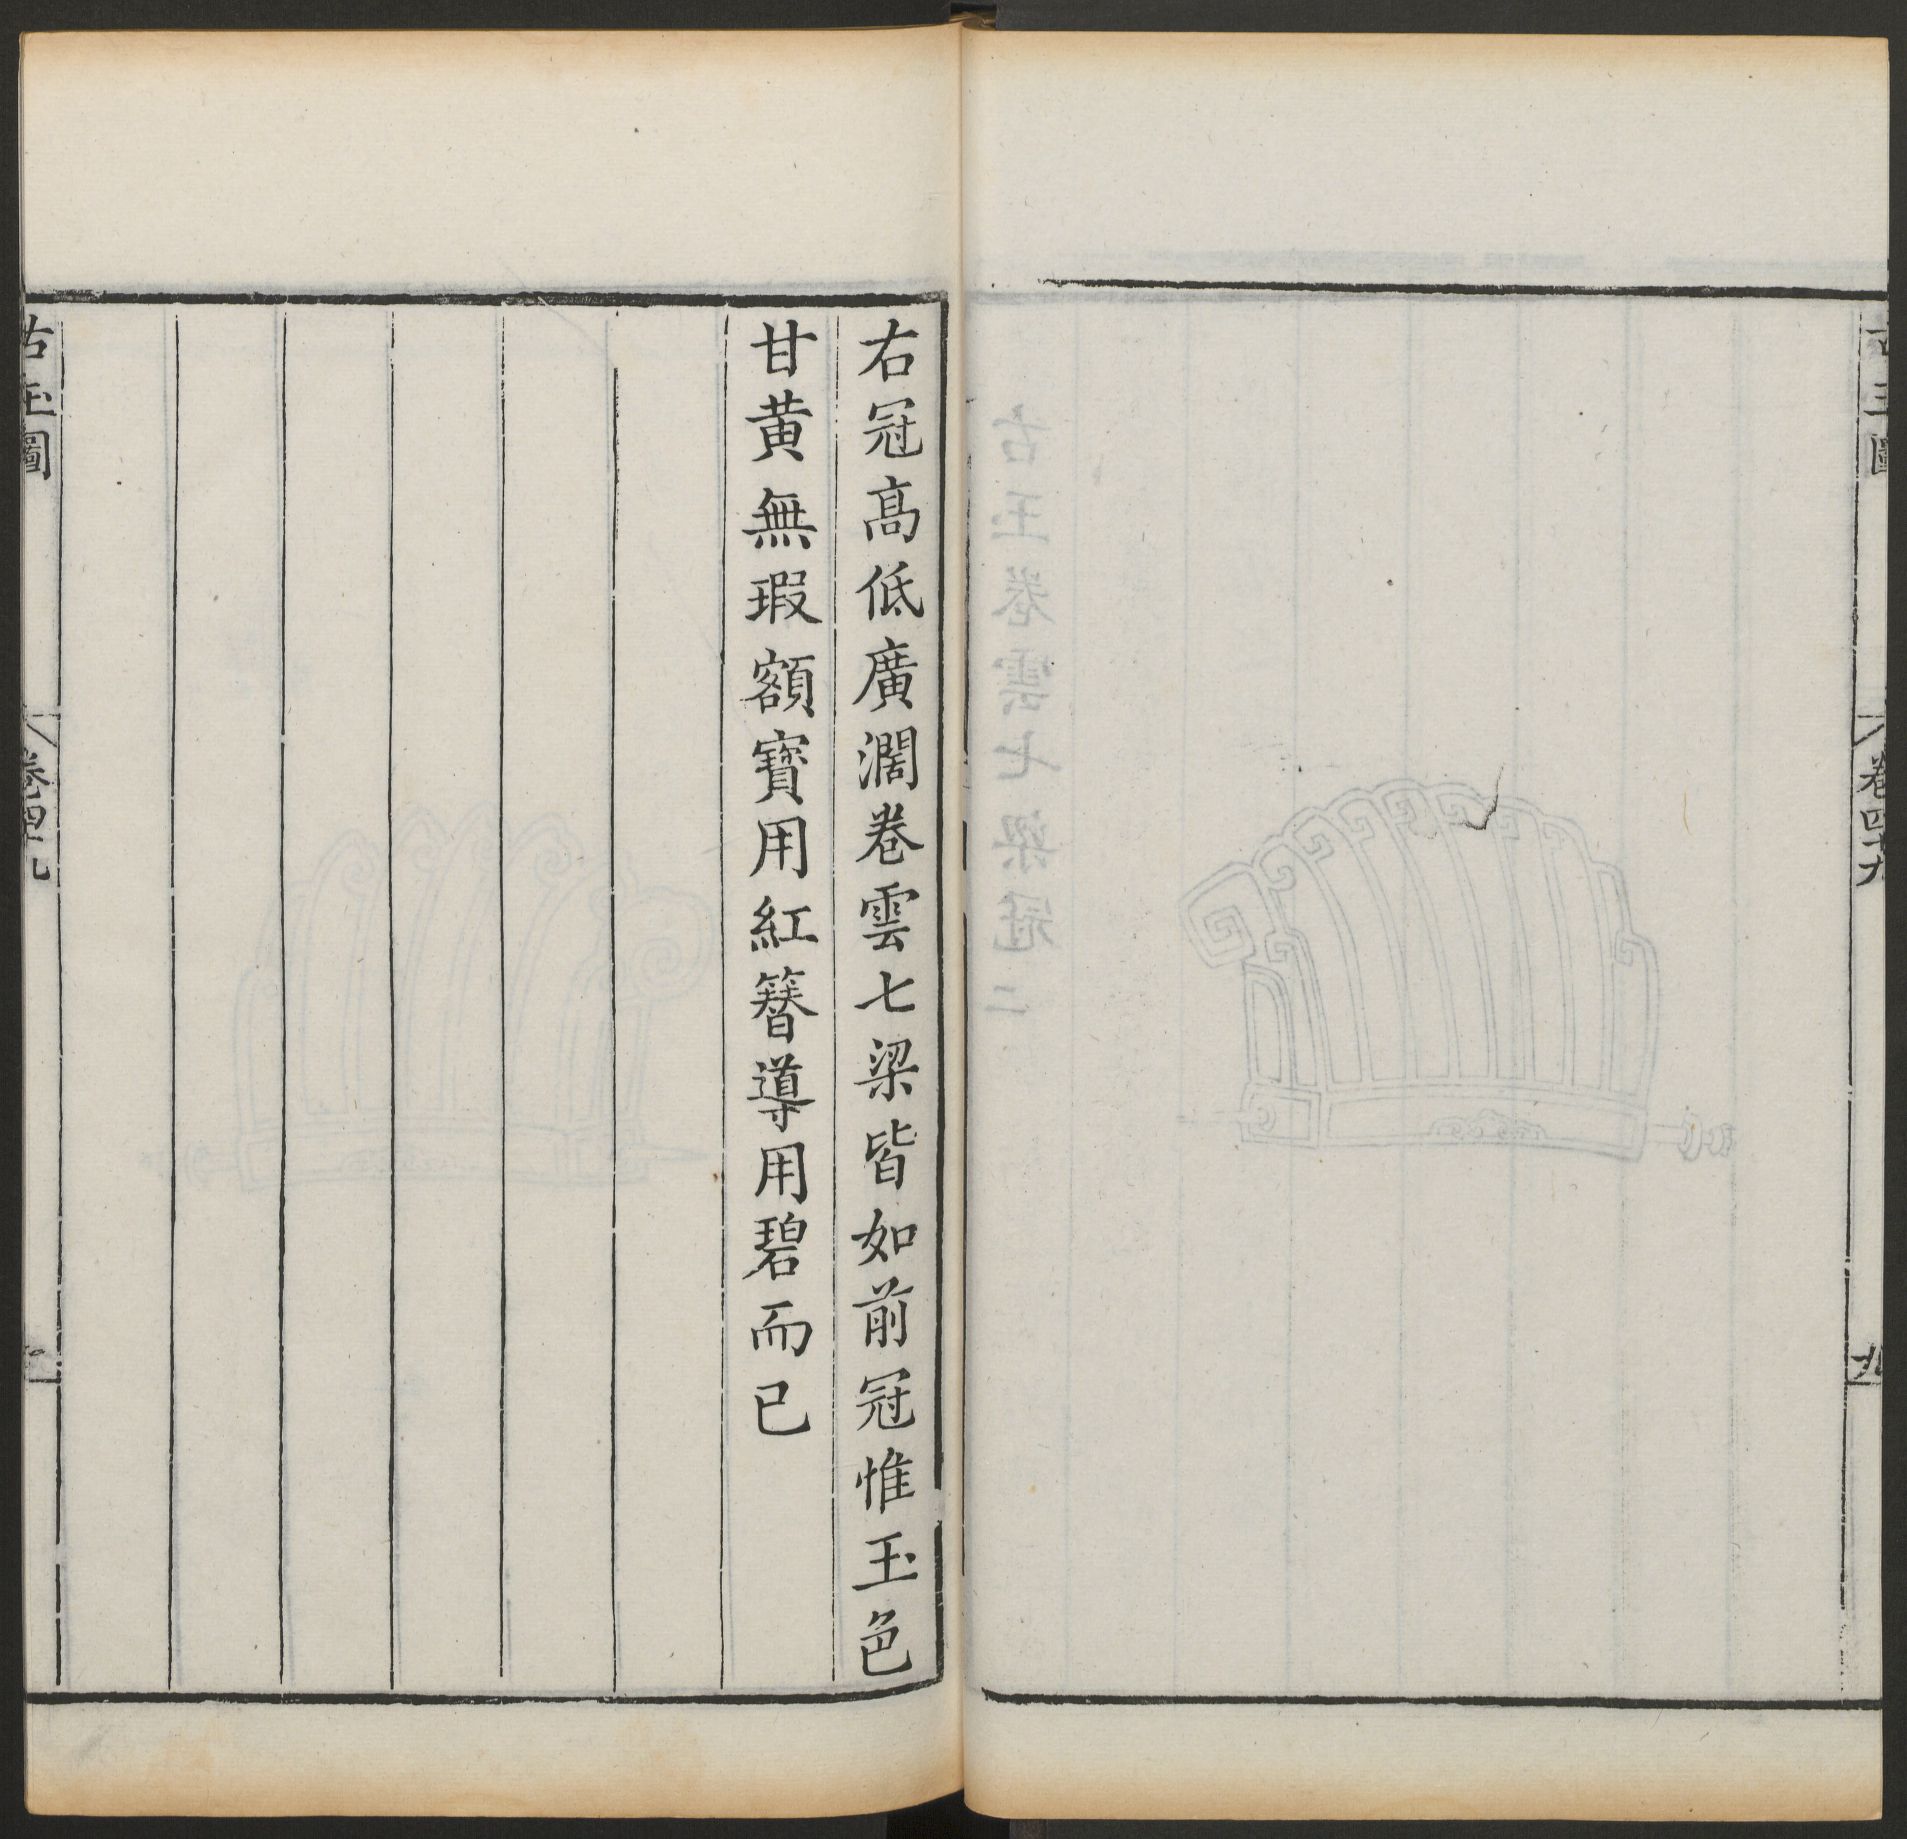 古玉圖
卷四十九
九
右冠髙低廣濶卷雲七梁皆如前冠惟玉色
甘黃無瑕額寶用紅簪導用碧而已
古玉圖
卷四十九